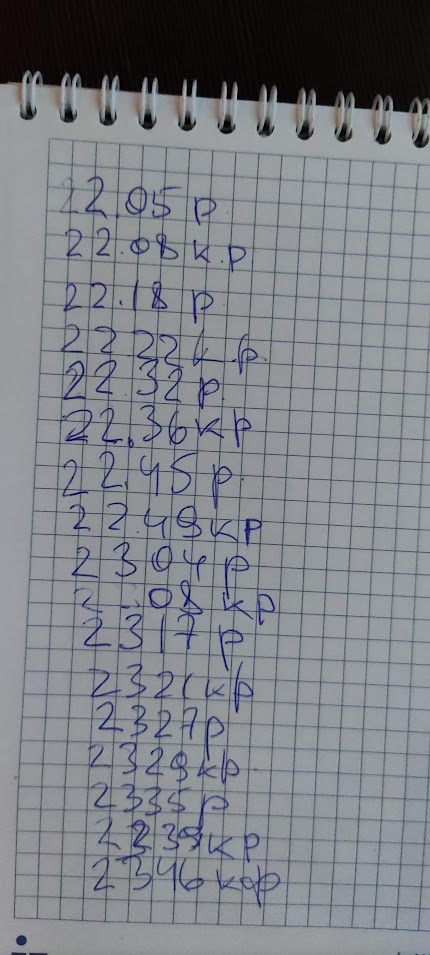 22.05 р
22.08 к.р
22.18 р
22.22 к.р.
22.32 р.
22.36 кр
22.45 р
22.49 кр
2304 р
08 кр
2317 р
2321 кр
2327 р
2329 кр
2335 р
2239 кр
2346 кор